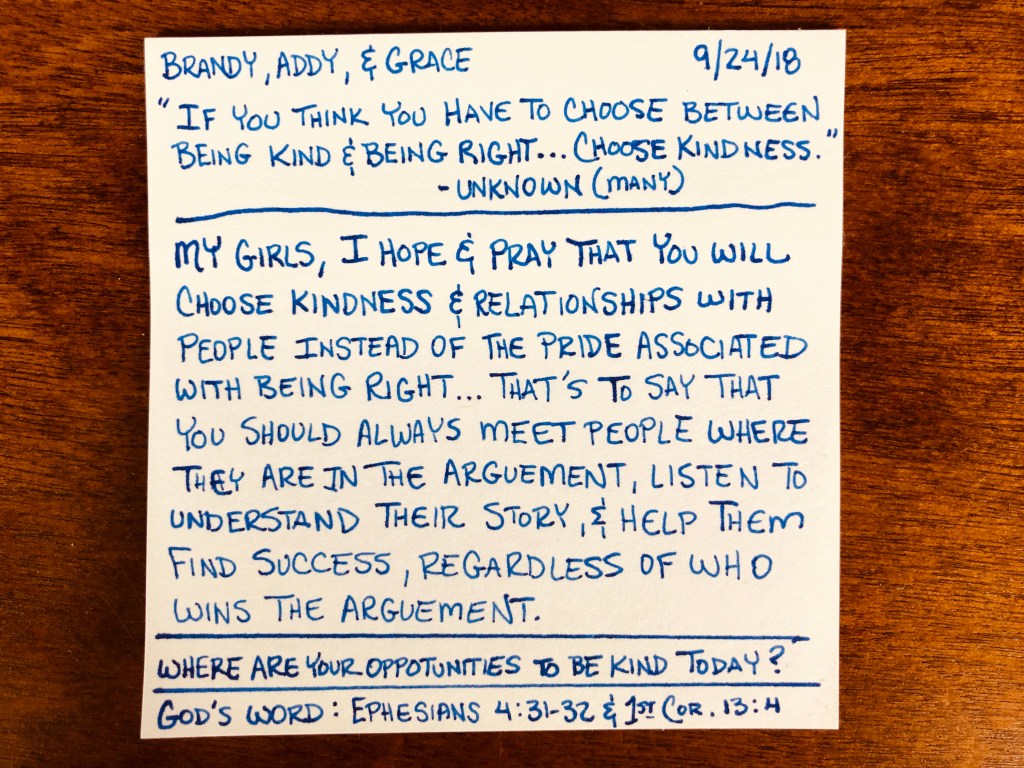 BRANDY, ADDY, & GRACE 9/24/18
"IF YOU THINK YOU HAVE TO CHOOSE BETWEEN
BEING KIND & BEING RIGHT... CHOOSE KINDNESS."
- UNKNOWN (MANY)
MY GIRLS, I HOPE & PRAY THAT YOU WILL
CHOOSE KINDNESS & RELATIONSHIPS WITH
PEOPLE INSTEAD OF THE PRIDE ASSOCIATED
WITH BEING RIGHT... THAT'S TO SAY THAT
YOU SHOULD ALWAYS MEET PEOPLE WHERE
THEY ARE IN THE ARGUEMENT, LISTEN TO
UNDERSTAND THEIR STORY, & HELP THEM
FIND SUCCESS, REGARDLESS OF WHO
WINS THE ARGUEMENT.
WHERE ARE YOUR OPPOTUNITIES TO BE KIND TODAY?
GOD'S WORD: EPHESIANS 4:31-32 & 1ST COR. 13:4